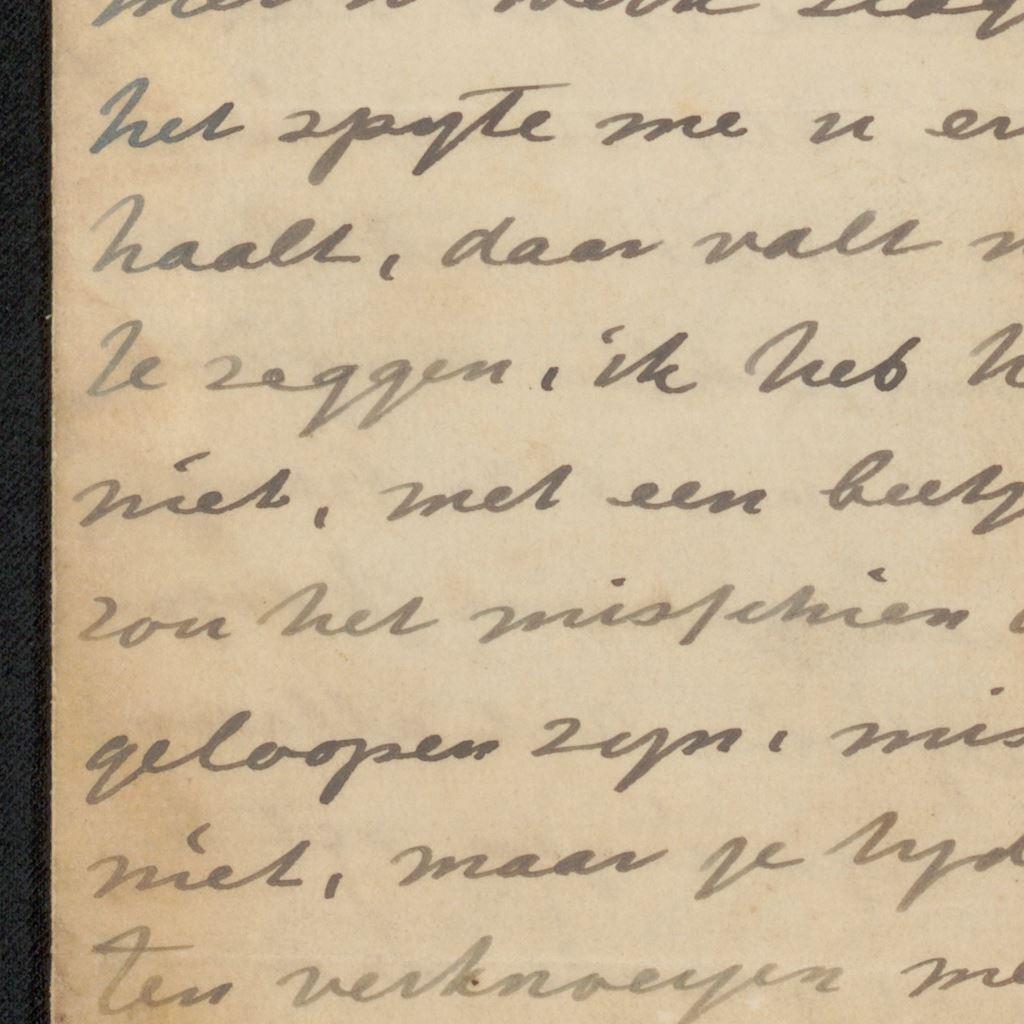 met u werk
het spyte me u er
haalt, daar valt
te zeggen, ik heb
niet, met een beetj
zou het misschien
geloopen zyn, mis
niet, maar je tyd
ten verknoeyen me